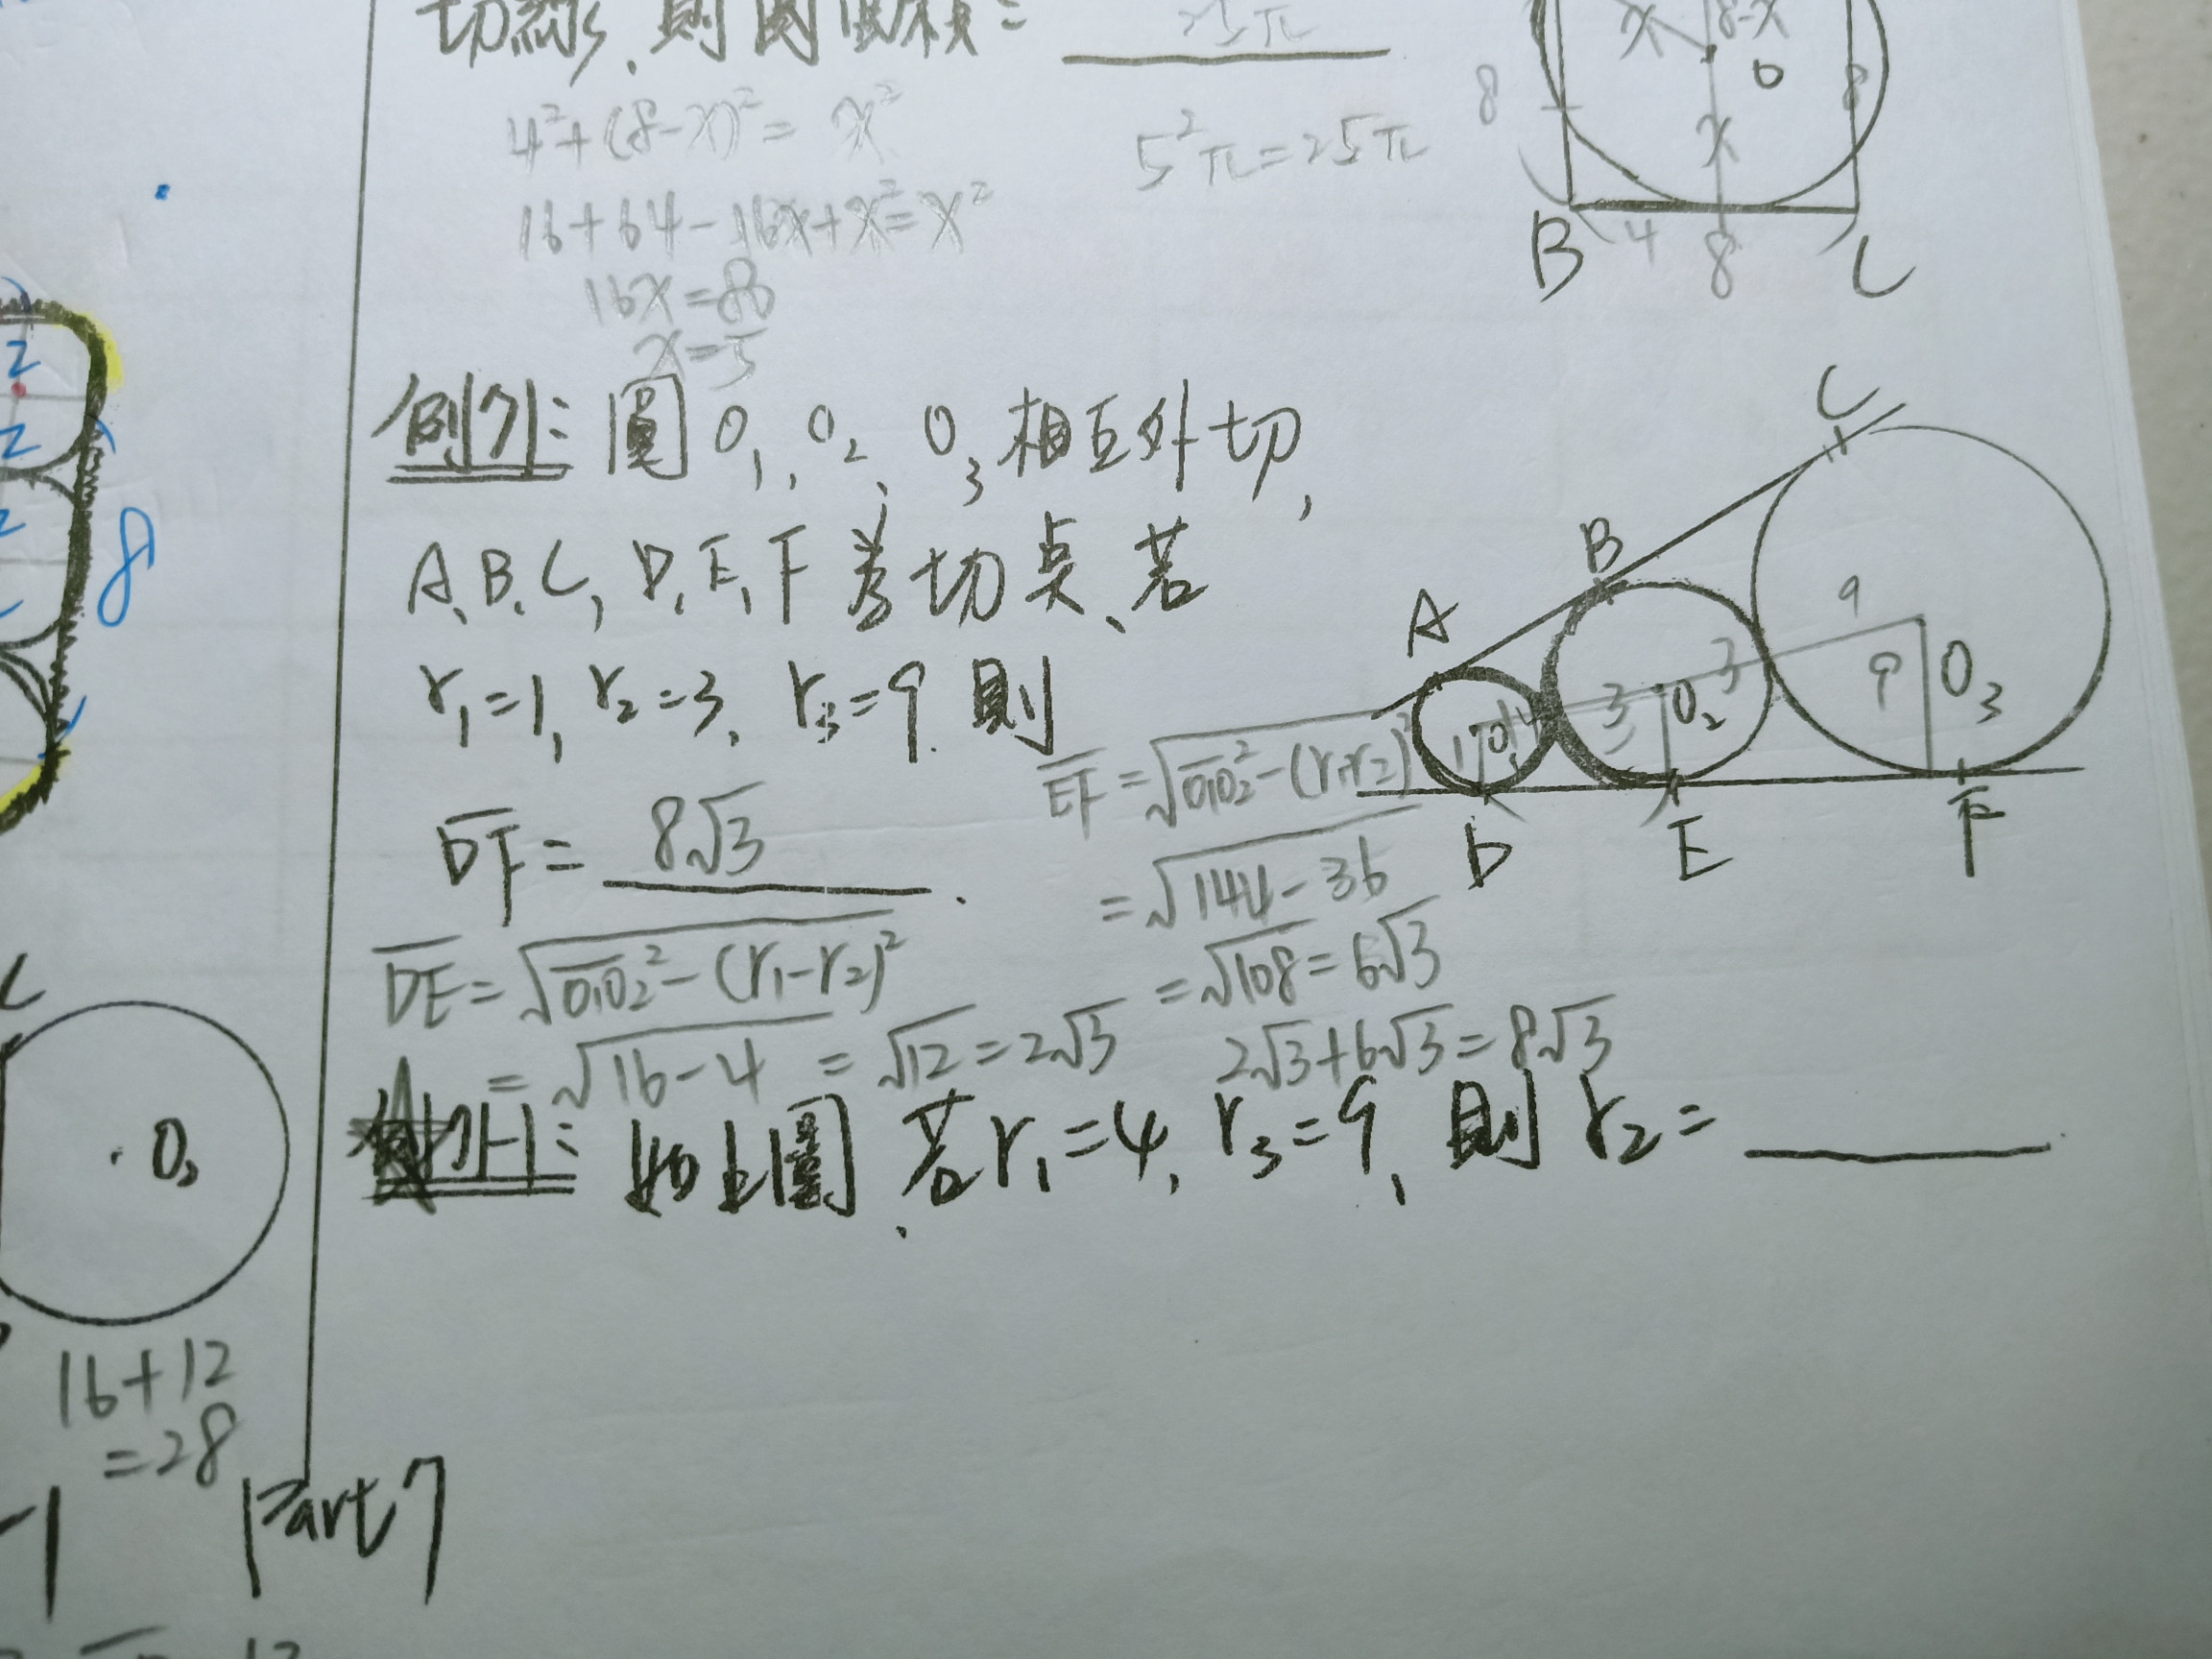 切線,則圓面積= 25π
4²+(8-x)²= x²
5²π=25π
16+64-16x+x²=x²
16x=80
x=5
x
8-x
O
8
8
x
B
4
8
C
例7: 圓O₁, O₂, O₃相互外切,
A, B, C, D, E, F為切點,若
r₁=1, r₂=3, r₃=9 則
DF = 8√3 .
DE = √(O₁O₂² - (r₁-r₂)²)
= √(16-4) = √12 = 2√3
EF = √(O₁O₂² - (r₁-r₂)²)
= √(144-36)
= √108 = 6√3
2√3+6√3=8√3
C
B
A
9
9
O₃
3
3
O₂
1
O₁
D
E
F
例7-1: 如上圖,若r₁=4, r₃=9, 則r₂=
2
2
8
O₂
16+12
=28
Part 7